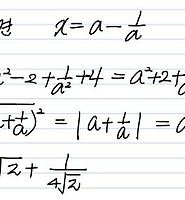 x = a - \frac{1}{a}
a² - 2 + \frac{1}{a²} + 4 = a² + 2 +
\overline{a + \frac{1}{a})²} = |a + \frac{1}{a}| = a
√2 + \frac{1}{4√2}